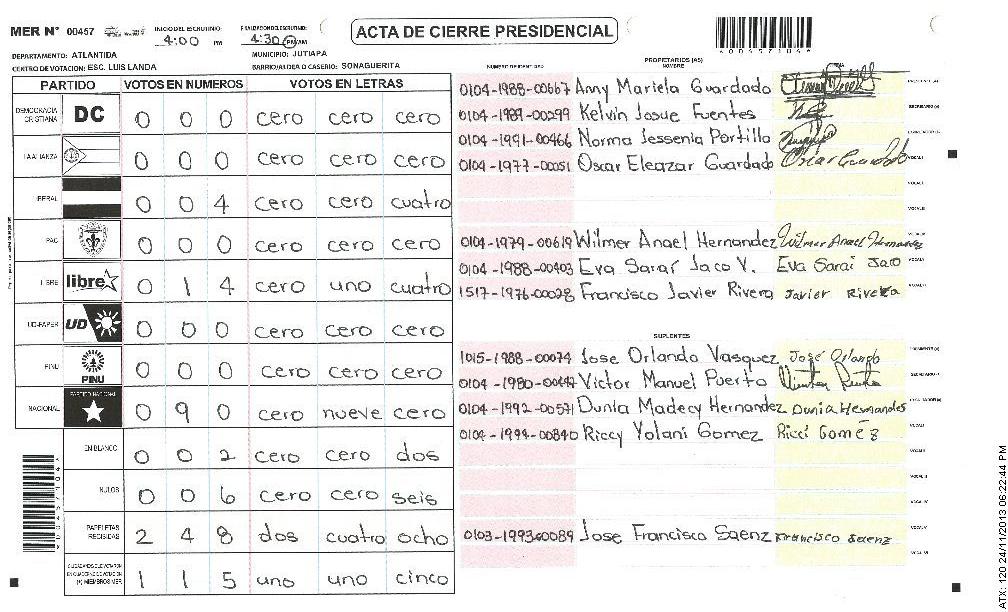 MER N° 00457
INICIO DEL ESCRUTINIO:
4:00 PM
FINALIZACION DEL ESCRUTINIO:
4:30 PM/AM
ACTA DE CIERRE PRESIDENCIAL
DEPARTAMENTO: ATLANTIDA
MUNICIPIO: JUTIAPA
CENTRO DE VOTACION: ESC. LUIS LANDA
BARRIO/ALDEA O CASERIO: SONAGUERITA
PARTIDO VOTOS EN NUMEROS VOTOS EN LETRAS
DEMOCRACIA CRISTIANA DC 0 0 0 cero cero cero
LA ALIANZA 0 0 0 cero cero cero
LIBERAL 0 0 4 cero cero cuatro
PAC 0 0 0 cero cero cero
LIBRE libre 0 1 4 cero uno cuatro
UD-FAPER UD 0 0 0 cero cero cero
PINU PINU 0 0 0 cero cero cero
NACIONAL PARTIDO NACIONAL 0 9 0 cero nueve cero
EN BLANCO 0 0 2 cero cero dos
NULOS 0 0 6 cero cero seis
PAPELETAS RECIBIDAS 2 4 8 dos cuatro ocho
CIUDADANOS QUE VOTARON EN CUADERNO DE VOTACION (+) MIEMBROS MER 1 1 5 uno uno cinco
NUMERO DE IDENTIDAD
PROPIETARIOS (AS)
NOMBRE
0104-1988-00667 Anny Mariela Guardado
0104-1989-00299 Kelvin Josue Fuentes
0104-1991-00466 Norma Jessenia Portillo
0104-1977-00051 Oscar Eleazar Guardado Oscar Guardado
0104-1979-00619 Wilmer Anael Hernandez Wilmer Anael Hernandez
0104-1988-00403 Eva Saraí Jaco V. Eva Sarai Jaco
1517-1976-00028 Francisco Javier Rivera Javier Rivera
SUPLENTES
1015-1988-00074 Jose Orlando Vasquez José Orlando
Victor Manuel Puerto
0104-1992-00571 Dunia Madecy Hernandez Dunia Hernandes
0104-1994-00840 Riccy Yolani Gomez Ricci Gomez
0103-1993-00089 Jose Francisco Saenz Francisco Saenz
ATX: 120 24/11/2013 06:22:44 PM